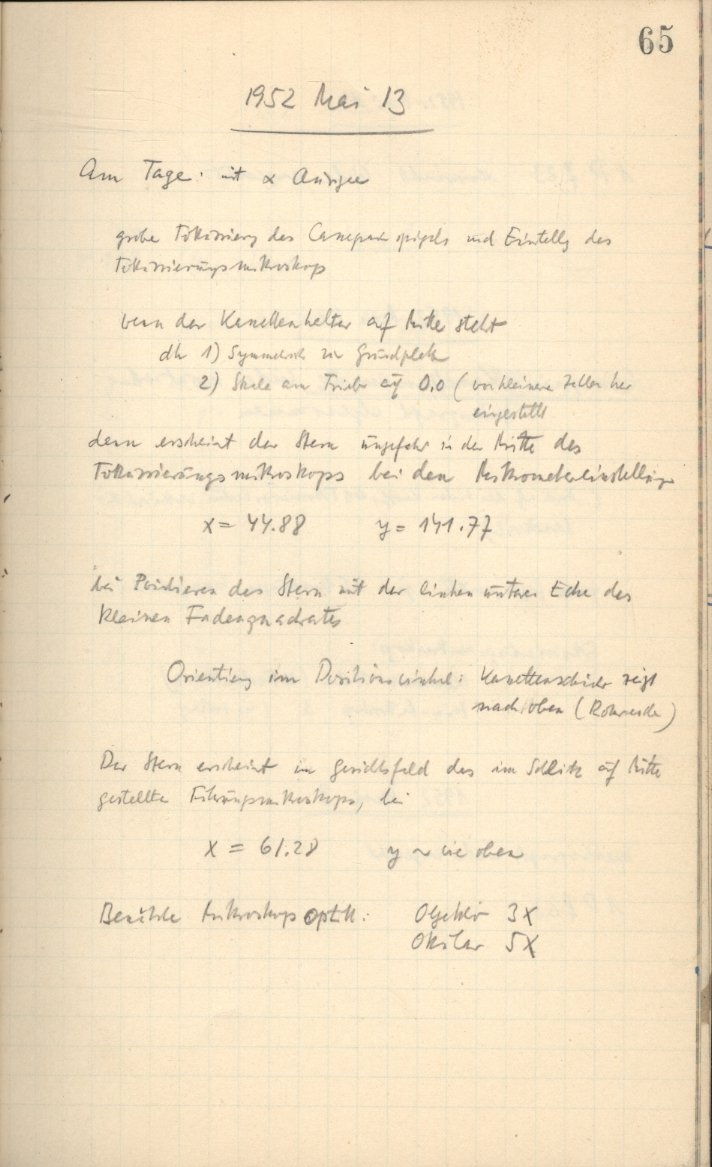 65
1952 Mai 13
Am Tage: mit α Aurigae
grobe Fokussierg des Cassegrain spiegels und Einstellg des
Fokussierungsmikroskops
wenn der Kassettenhalter auf Mitte steht
dh 1) Symmetrisch zur Grundplatte
2) Skala am Trieb auf 0.0 ( von kleinere Zahlen her
eingestellt
dann erscheint der Stern ungefähr in der Mitte des
Fokussierungsmikroskops bei den Mikrometereinstellungen
x = 44.88 y = 141.77
bei Pointieren des Stern mit der linken unteren Ecke des
kleinen Fadenquadrates
Orientierg im Positionswinkel: Kassettenschieber zeigt
nach oben ( )
Der Stern erscheint im Gesichtsfeld des im Schlitz auf Mitte
gestellten Führungsmikroskops, bei
x = 61.28 y ~ wie oben
Benützte Mikroskop optik: Objektiv 3X
Okular 5X